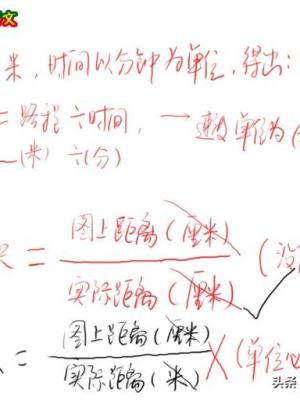 文
米，时间以分钟为单位，得出：
=路程÷时间，→ 速度单位为(
(米) ÷(分)
= 图上距离(厘米) (没
实际距离(厘米)
= 图上距离(厘米) ✓
实际距离(米) ×(单位
头条